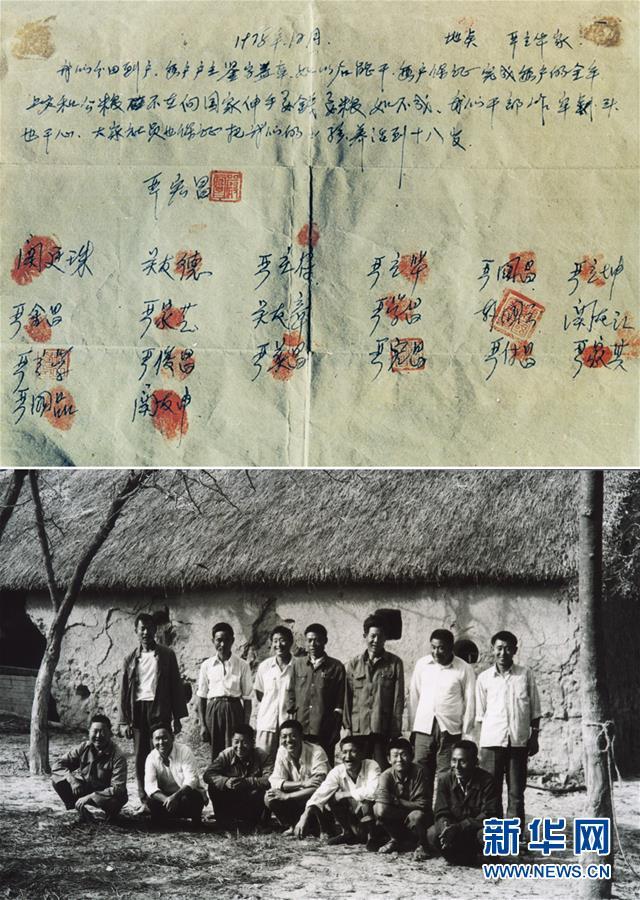 1978年12月. 地点 严立华家.
我们分田到户,每户户主签字盖章,如以后能干,每户保证完成每户的全年
上交和公粮.不在向国家伸手要钱要粮.如不成,我们干部作牢刹头
也干心,大家社员也保证把我们的小孩养活到十八岁.
严宏昌
关廷珠 关友德 严立符 严立华 严国昌 严立坤
严金昌 严家芝 关友章 严学昌 韩国云 关友江
严立学 严俊昌 严美昌 严宏昌 严付昌 严家其
严国品 关友申
新华网
WWW.NEWS.CN